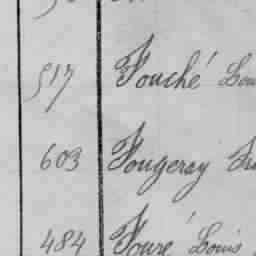 517 Fouché Lou
603 Fougeray
484 Fouré Louis